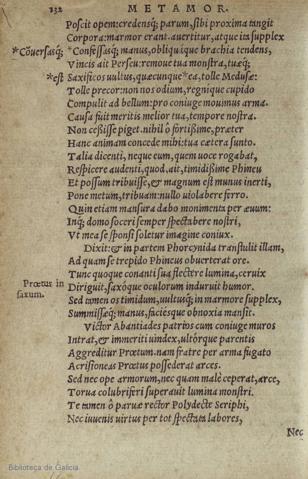 132 METAMOR.
Poscit opem: credensq; parum, sibi proxima tangit
Corpora: marmor erant. auertitur, atque ita supplex
*Cõuersasq; *Confessasq; manus, obliquaque brachia tendens,
Vincis ait Perseu: remoue tua monstra, tuæq;
*est Saxificos uultus, quæcunque *ea, tolle Medusæ:
Tolle precor: non nos odium, regnique cupido
Compulit ad bellum: pro coniuge mouimus arma.
Causa fuit meritis melior tua, tempore nostra.
Non ceßisse piget. nihil ô fortißime, præter
Hanc animam concede mihi: tua cætera sunto.
Talia dicenti, neque eum, quem uoce rogabat,
Respicere audenti, quod, ait, timidißime Phineu
Et possum tribuisse, & magnum est munus inerti,
Pone metum, tribuam: nullo uiolabere ferro.
Quin etiam mansura dabo monimenta per æuum:
Inq; domo soceri semper spectabere nostri,
Vt mea se sponsi soletur imagine coniux.
Dixit: & in partem Phorcynida transtulit illam,
Ad quam se trepido Phineus obuerterat ore.
Tunc quoque conanti sua flectere lumina, ceruix
Prœtus in saxum. Diriguit, saxóque oculorum induruit humor.
Sed tamen os timidum, uultusq; in marmore supplex,
Summissæq; manus, faciésque obnoxia mansit.
Victor Abantiades patrios cum coniuge muros
Intrat, & immeriti uindex, ultórque parentis
Aggreditur Prœtum. nam fratre per arma fugato
Acrisioneas Prœtus possederat arces.
Sed nec ope armorum, nec quam malè ceperat, arce,
Torua colubriferi superauit lumina monstri.
Te tamen ô paruæ rector Polydecte Seriphi,
Nec iuuenis uirtus per tot spectata labores,
Nec
Biblioteca de Galicia